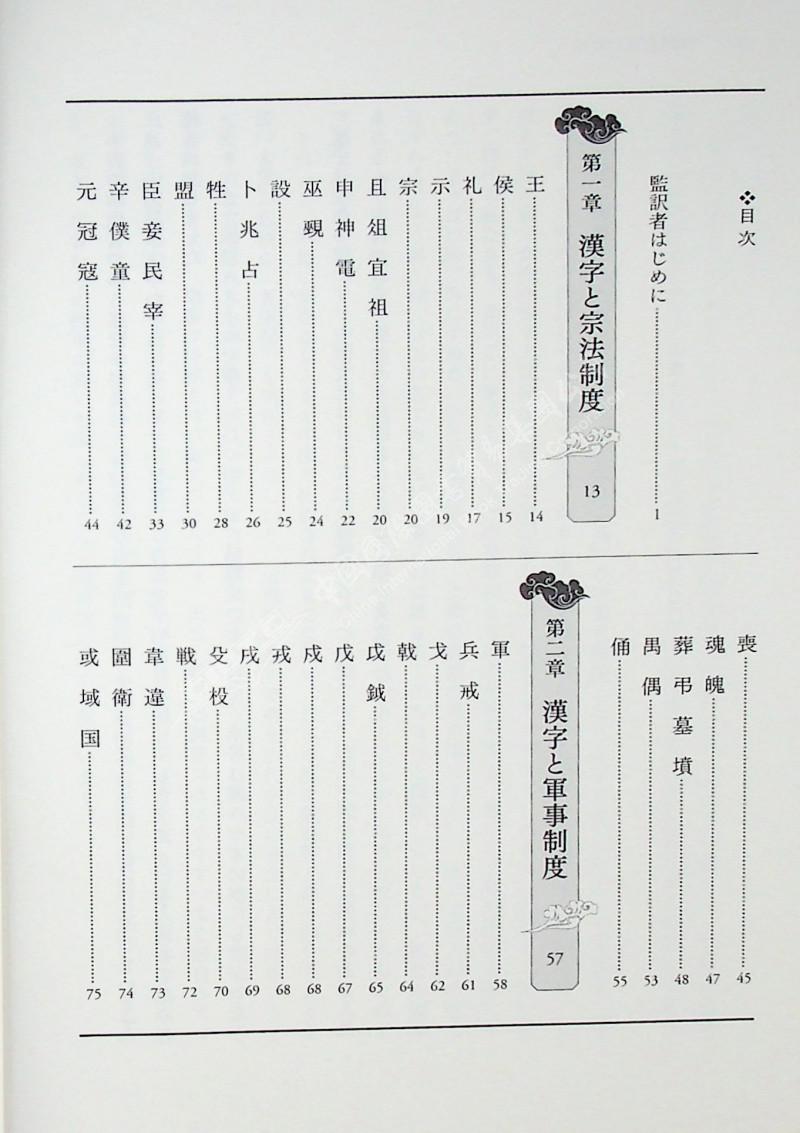 ❖目次
監訳者はじめに 1
第一章 漢字と宗法制度 13
王 14
侯 15
礼 17
示 19
宗 20
且 俎 宜 祖 20
申 神 電 22
巫 覡 24
設 25
卜 兆 占 26
牲 28
盟 30
臣 妾 民 宰 33
辛 僕 童 42
元 冠 寇 44
喪 45
魂 魄 47
葬 弔 墓 墳 48
禺 偶 53
俑 55
第二章 漢字と軍事制度 57
軍 58
兵 戒 61
戈 62
戟 64
戉 鉞 65
戊 67
戍 68
戎 68
戌 69
殳 投 70
戦 72
韋 違 73
圍 衛 74
或 域 国 75